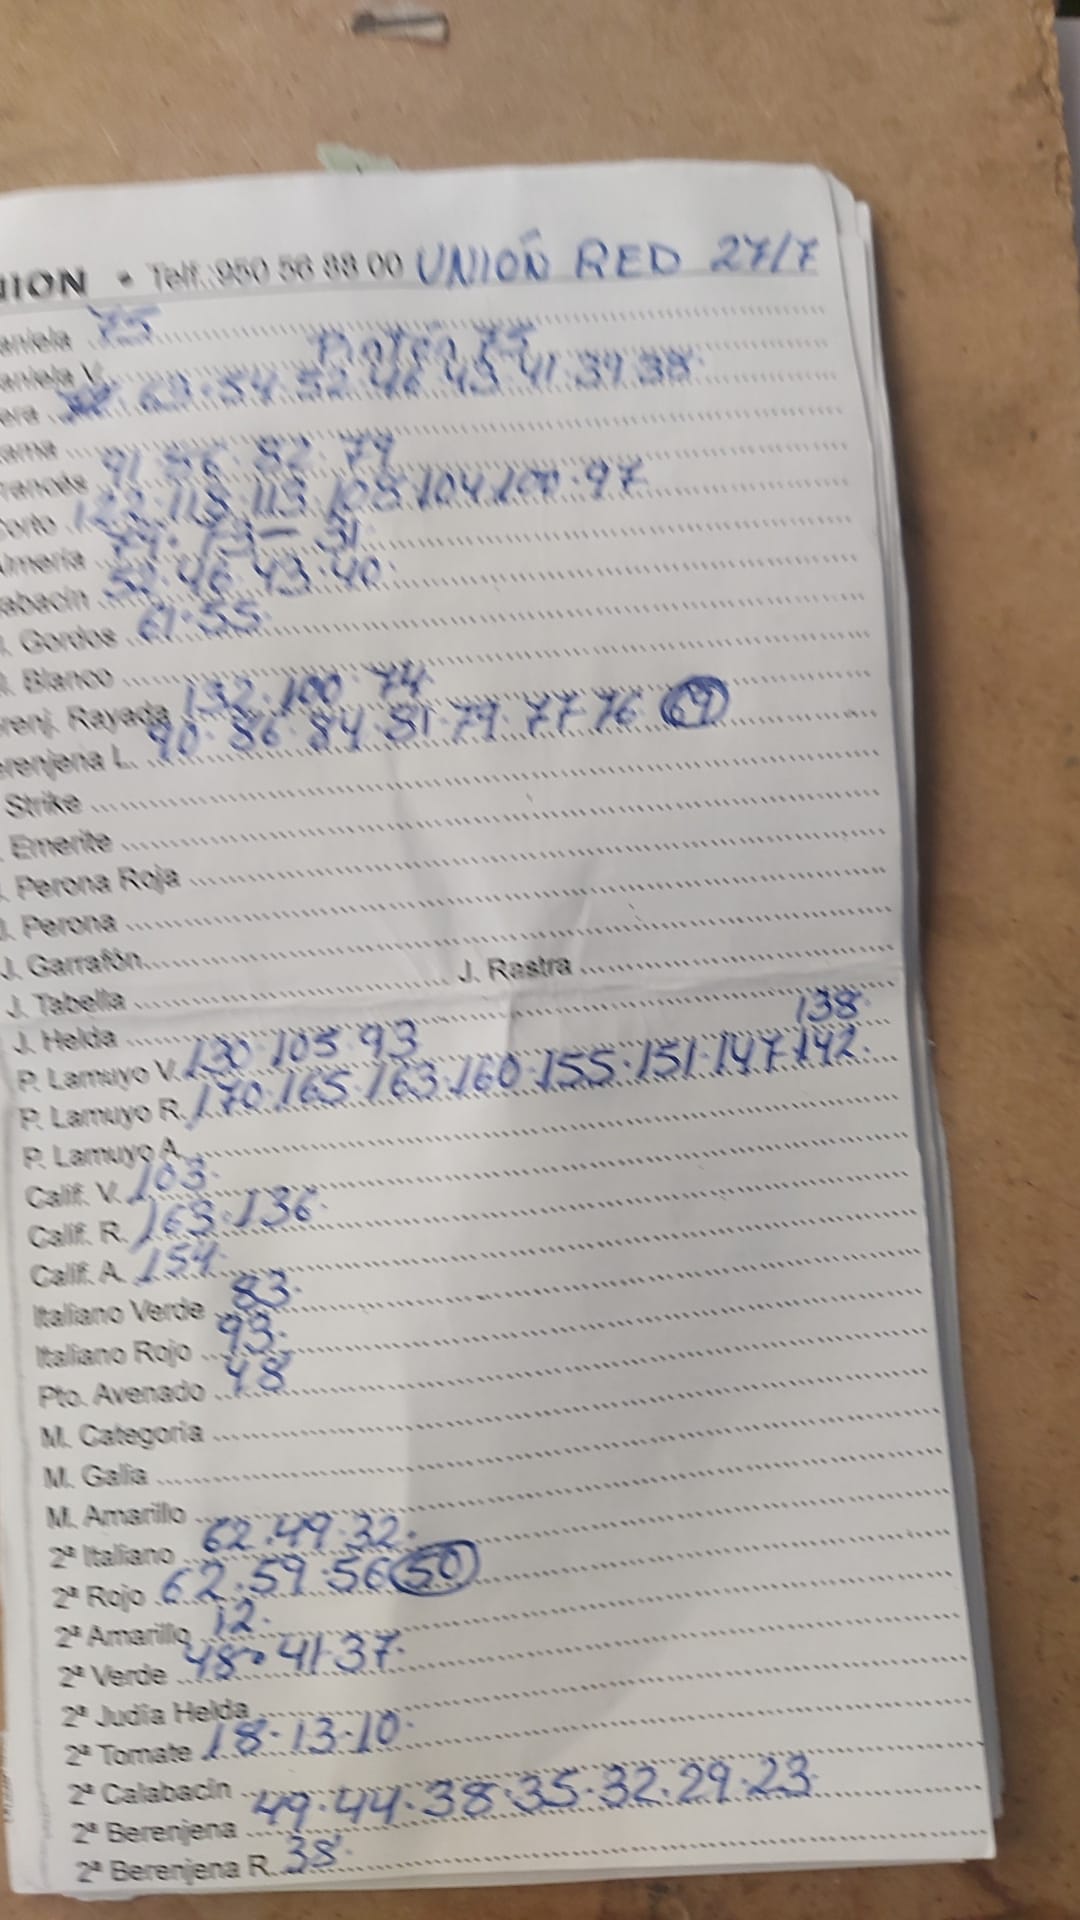 NION • Telf.:950 56 88 00 UNION RED 27/7
aniela 75
aniela V. 75
era 63·54·52·46·43·41·39·38·
ama
rancés 91·86·82·79
Corto 122·118·113·108·104·100·97
lmería 79·73–51·
abacín 52·46·43·40·
. Gordos 61·55·
. Blanco
renj. Rayada 132·100·74·
erenjena L. 90·86·84·81·79·77·76 69
Strike
. Emerite
. Perona Roja
J. Perona
J. Garrafón
J. Tabella J. Rastra
J. Helda
138·
P. Lamuyo V. 130·105·93
P. Lamuyo R. 170·165·163·160·155·151·147·142·
P. Lamuyo A.
Calif. V. 103·
Calif. R. 163·136·
Calif. A. 154·
Italiano Verde 83·
Italiano Rojo 93·
Pto. Avenado 48·
M. Categoría
M. Galia
M. Amarillo
2ª Italiano 62·49·32·
2ª Rojo 62·59·56 50
2ª Amarillo 12·
2ª Verde 48·41·37·
2ª Judía Helda
2ª Tomate 18·13·10·
2ª Calabacín
2ª Berenjena 49·44·38·35·32·29·23·
2ª Berenjena R. 38·